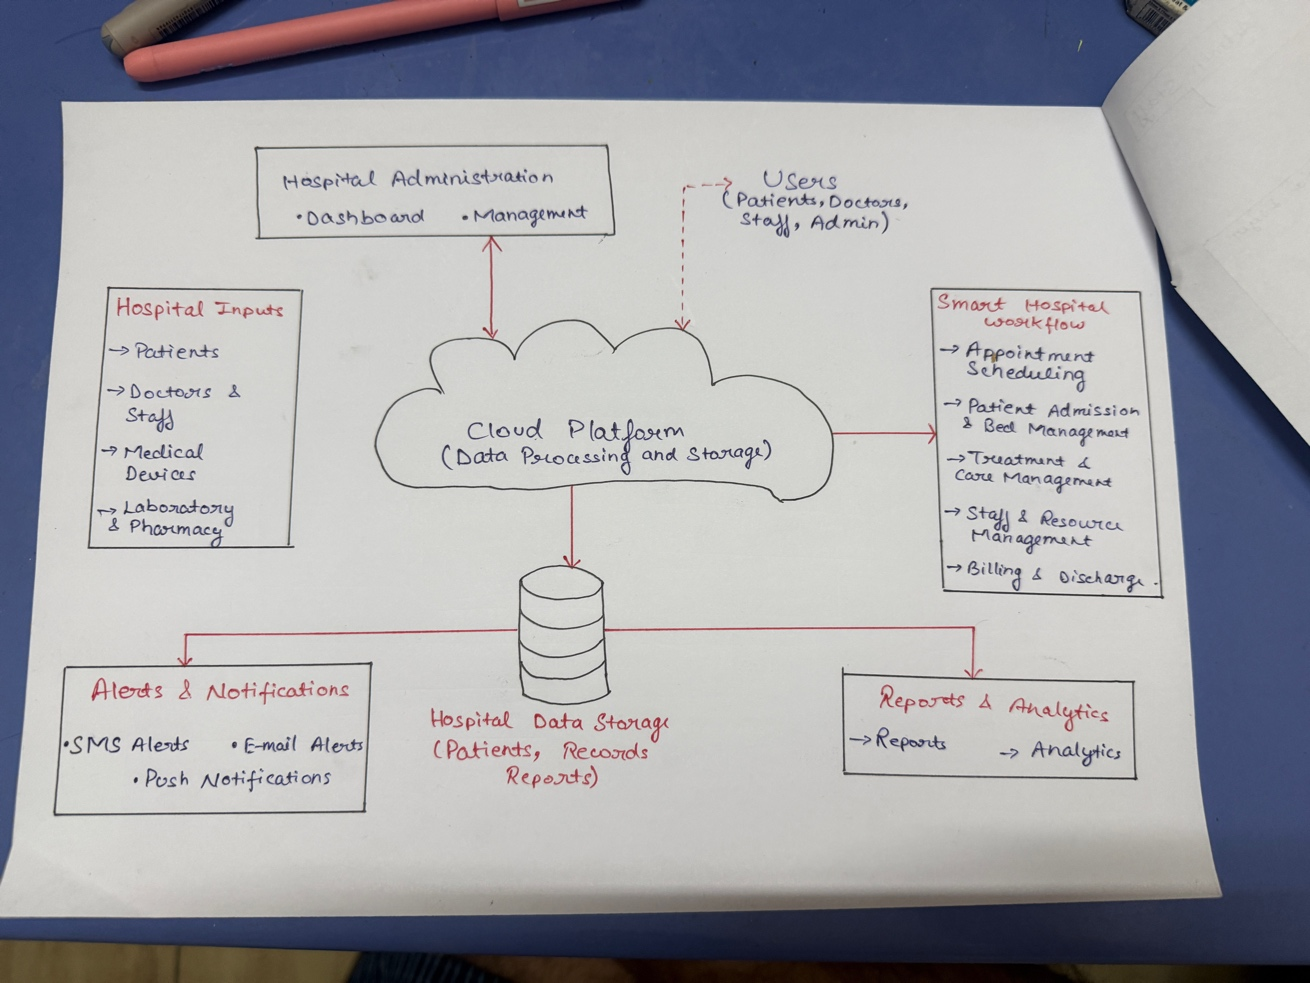 Hospital Administration
• Dashboard • Management
Users
(Patients, Doctors,
Staff, Admin)
Hospital Inputs
→ Patients
→ Doctors &
Staff
→ Medical
Devices
→ Laboratory
& Pharmacy
Cloud Platform
(Data Processing and Storage)
Smart Hospital
Workflow
→ Appointment
Scheduling
→ Patient Admission
& Bed Management
→ Treatment &
Care Management
→ Staff & Resource
Management
→ Billing & Discharge.
Alerts & Notifications
• SMS Alerts • E-mail Alerts
• Push Notifications
Hospital Data Storage
(Patients, Records
Reports)
Reports & Analytics
→ Reports → Analytics